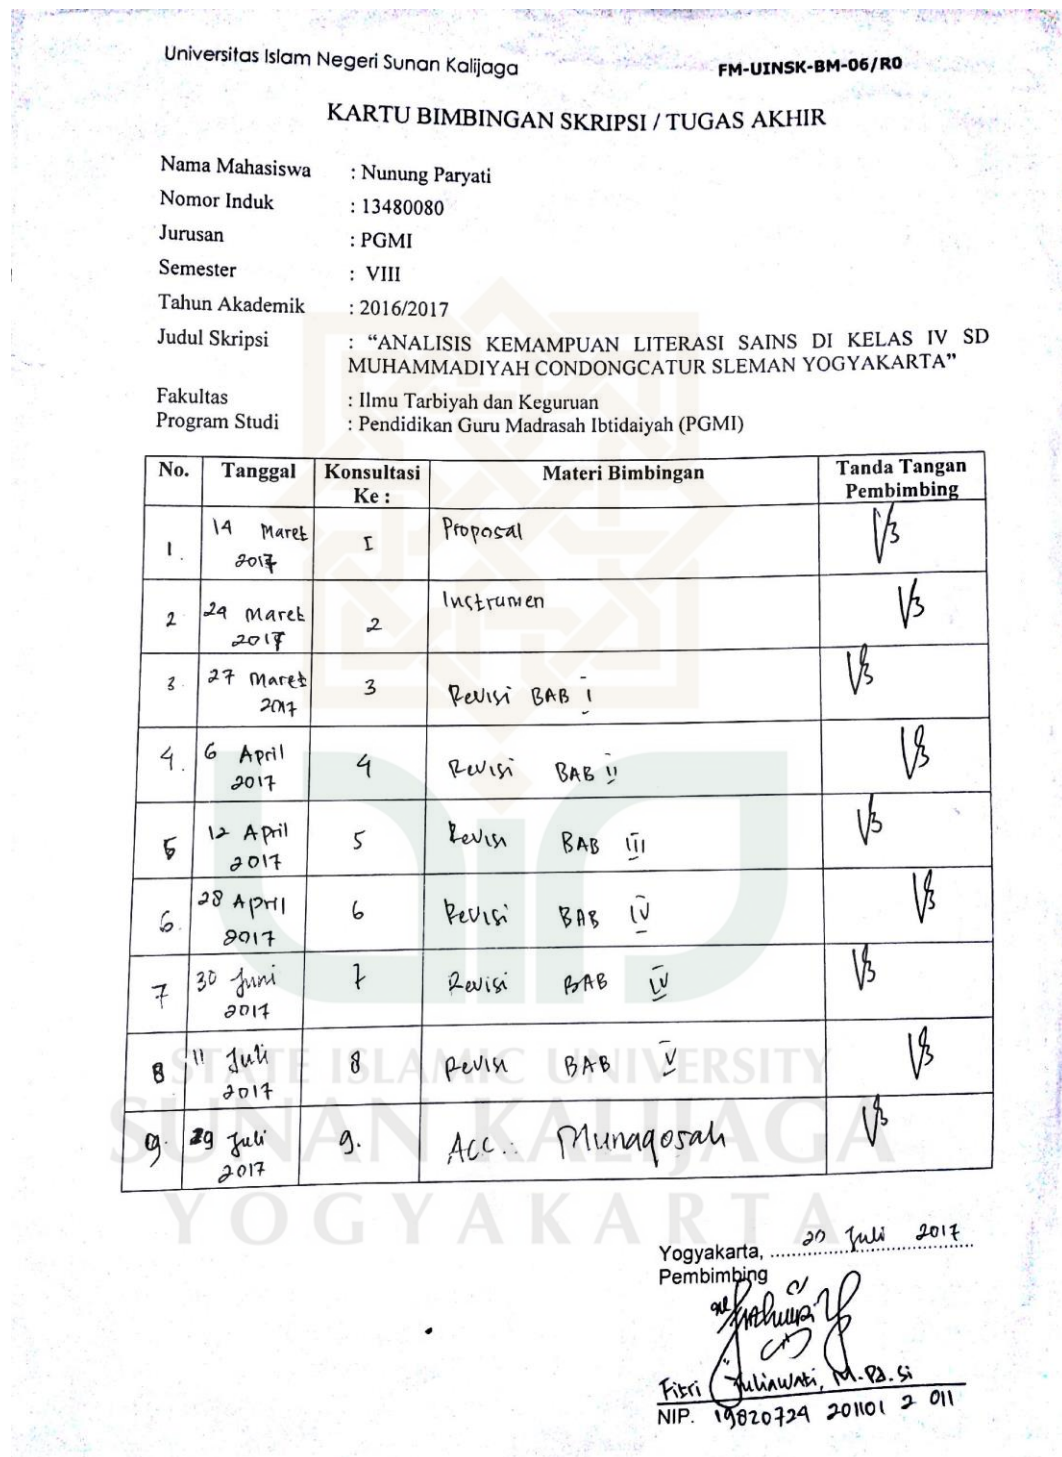 Universitas Islam Negeri Sunan Kalijaga FM-UINSK-BM-06/R0
KARTU BIMBINGAN SKRIPSI / TUGAS AKHIR
Nama Mahasiswa : Nunung Paryati
Nomor Induk : 13480080
Jurusan : PGMI
Semester : VIII
Tahun Akademik : 2016/2017
Judul Skripsi : “ANALISIS KEMAMPUAN LITERASI SAINS DI KELAS IV SD
MUHAMMADIYAH CONDONGCATUR SLEMAN YOGYAKARTA”
Fakultas : Ilmu Tarbiyah dan Keguruan
Program Studi : Pendidikan Guru Madrasah Ibtidaiyah (PGMI)
No. Tanggal Konsultasi Ke : Materi Bimbingan Tanda Tangan Pembimbing
1. 14 Maret 2017 I Proposal
2. 24 Maret 2017 2 Instrumen
3. 27 Maret 2017 3 Revisi BAB I
4. 6 April 2017 4 Revisi BAB II
5 12 April 2017 5 Revisi BAB III
6. 28 April 2017 6 Revisi BAB IV
7 30 Juni 2017 7 Revisi BAB IV
8 11 Juli 2017 8 Revisi BAB V
9. 29 Juli 2017 9. Acc : Munaqosah
STATE ISLAMIC UNIVERSITY
SUNAN KALIJAGA
YOGYAKARTA
Yogyakarta, 20 Juli 2017
Pembimbing
Fitri Yuliawati, M.Pd.Si
NIP. 19820724 201101 2 011